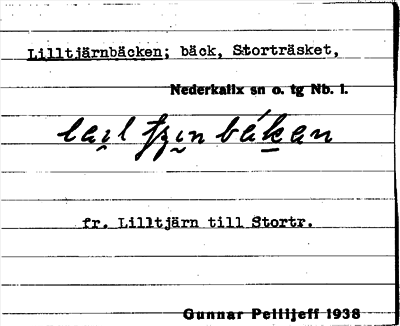 Lilltjärnbäcken; bäck, Storträsket,
Nederkalix sn o. tg Nb. l.
fr. Lilltjärn till Stortr.
Gunnar Pellijeff 1938